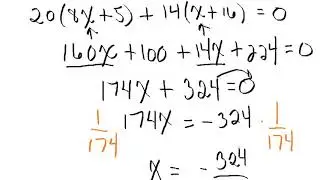 20(8x+5) + 14(x+16) = 0
160x + 100 + 14x + 224 = 0
174x + 324 = 0
1/174 174x = -324 · 1/174
x = - 324